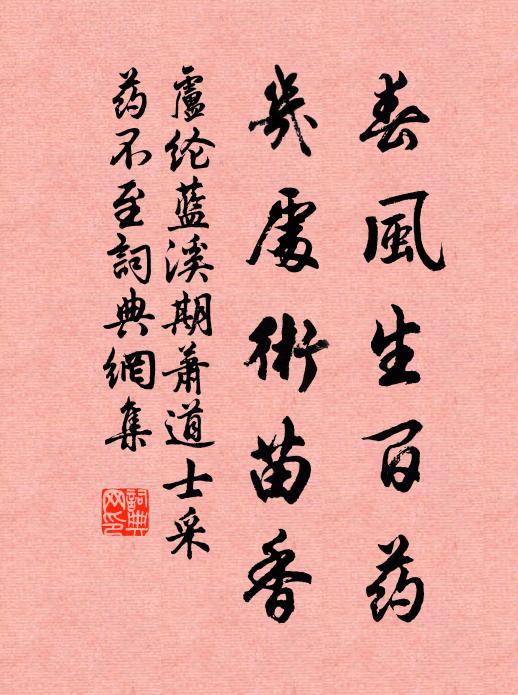 春風生百药
幾處術苗香
盧纶藍溪期蕭道士采
药不至詞典網集
詞典
网印